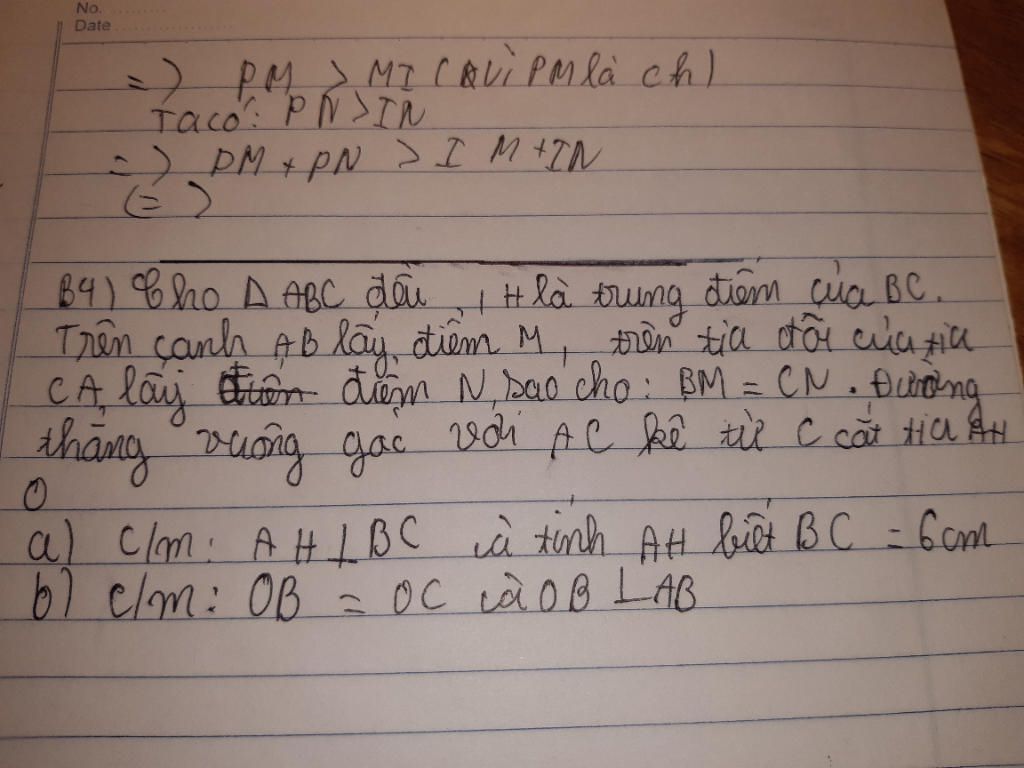 No. .........
Date ....................
=) PM > MI (Vì PM là ch)
Ta có: PN > IN
=) PM + PN > IM + IN
(=)
B4) Cho Δ ABC đều, H là trung điểm của BC.
Trên cạnh AB lấy điểm M, trên tia đối của tia
CA lấy điểm N, sao cho: BM = CN. Đường
thẳng vuông góc với AC kẻ từ C cắt tia AH
O
a) C/m: AH ⊥ BC và tính AH biết BC = 6cm
b) C/m: OB = OC và OB ⊥ AB